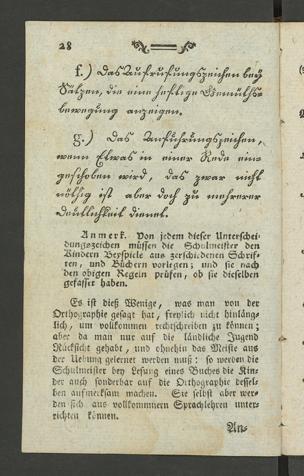 28
f.) Das Aufrufungszeichen bey
Sätzen, die eine heftige Gemüths-
bewegung anzeigen.
g.) Das Anführungszeichen,
wenn Etwas in einer Rede ein-
geschoben wird, das zwar nicht
nöthig ist aber doch zu mehrerer
Deutlichkeit dienet.
Anmerk. Von jedem dieser Unterschei-
dungszeichen müssen die Schulmeister den
Kindern Beyspiele aus zerschiedenen Schrif-
ten, und Büchern vorlegen; und sie nach
den obigen Regeln prüfen, ob sie dieselben
gefasset haben.
Es ist dieß Wenige, was man von der
Orthographie gesagt hat, freylich nicht hinläng-
lich, um vollkommen rechtschreiben zu können;
aber da man nur auf die ländliche Jugend
Rücksicht gehabt, und ohnehin das Meiste aus
der Uebung gelernet werden muß: so werden die
Schulmeister bey Lesung eines Buches die Kin-
der auch sonderbar auf die Orthographie dessel-
ben aufmerksam machen. Sie selbst aber wer-
den sich aus vollkommnern Sprachlehren unter-
richten können.
An-